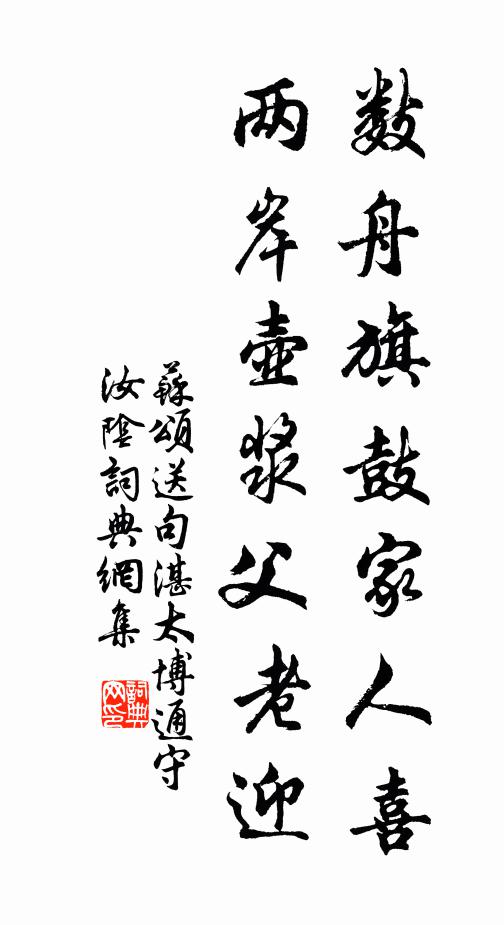 数舟旗鼓家人喜
两岸壶浆父老迎
蘇頌送句湛太博通守
汝陰詞典網集
詞典网印